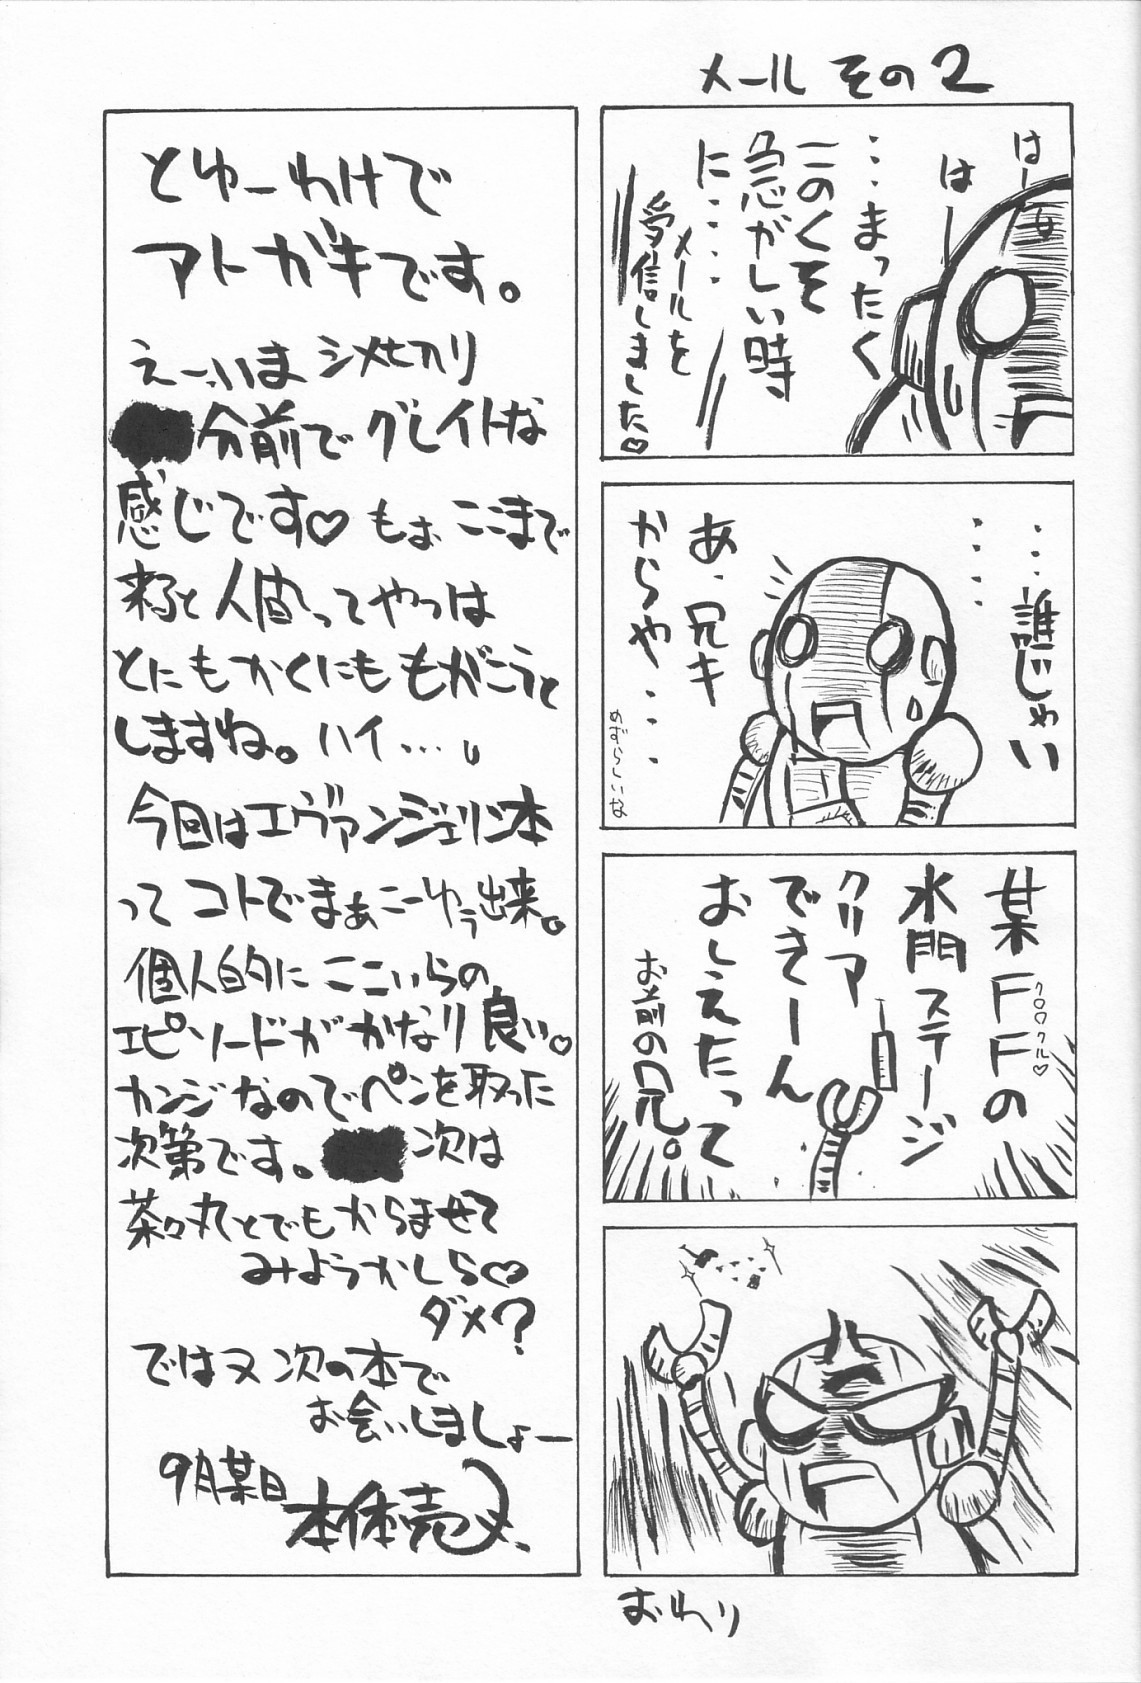 メール その2
はー
はー
・・・まったく
このくそ
急がしい時
に・・・・
メールを
受信しました♡
・・・誰じゃい
・・・・
あ、兄キ
からや・・・
めずらしいな
某FFの
クロワクル♡
水門ステージ
クリア
できーん
おしえたって
お前の兄。
おわり
とゆーわけで
アトガキです。
えー、いま シメ切リ
分前で グレイトな
感じです♡ もぉ ここまで
来ると 人間ってやつは
とにもかくにも もがこうと
しますね。ハイ…。
今回はエヴァンジェリン本
って コトでまぁこーゆう出来。
個人的に ここいらの
エピソードが かなり 良い♡
カンジなのでペンを取った
次第です。 次は
茶々丸とでもからませて
みようかしら♡
ダメ?
ではヌ 次の本で
お会いしましょー
9月某日
本体売